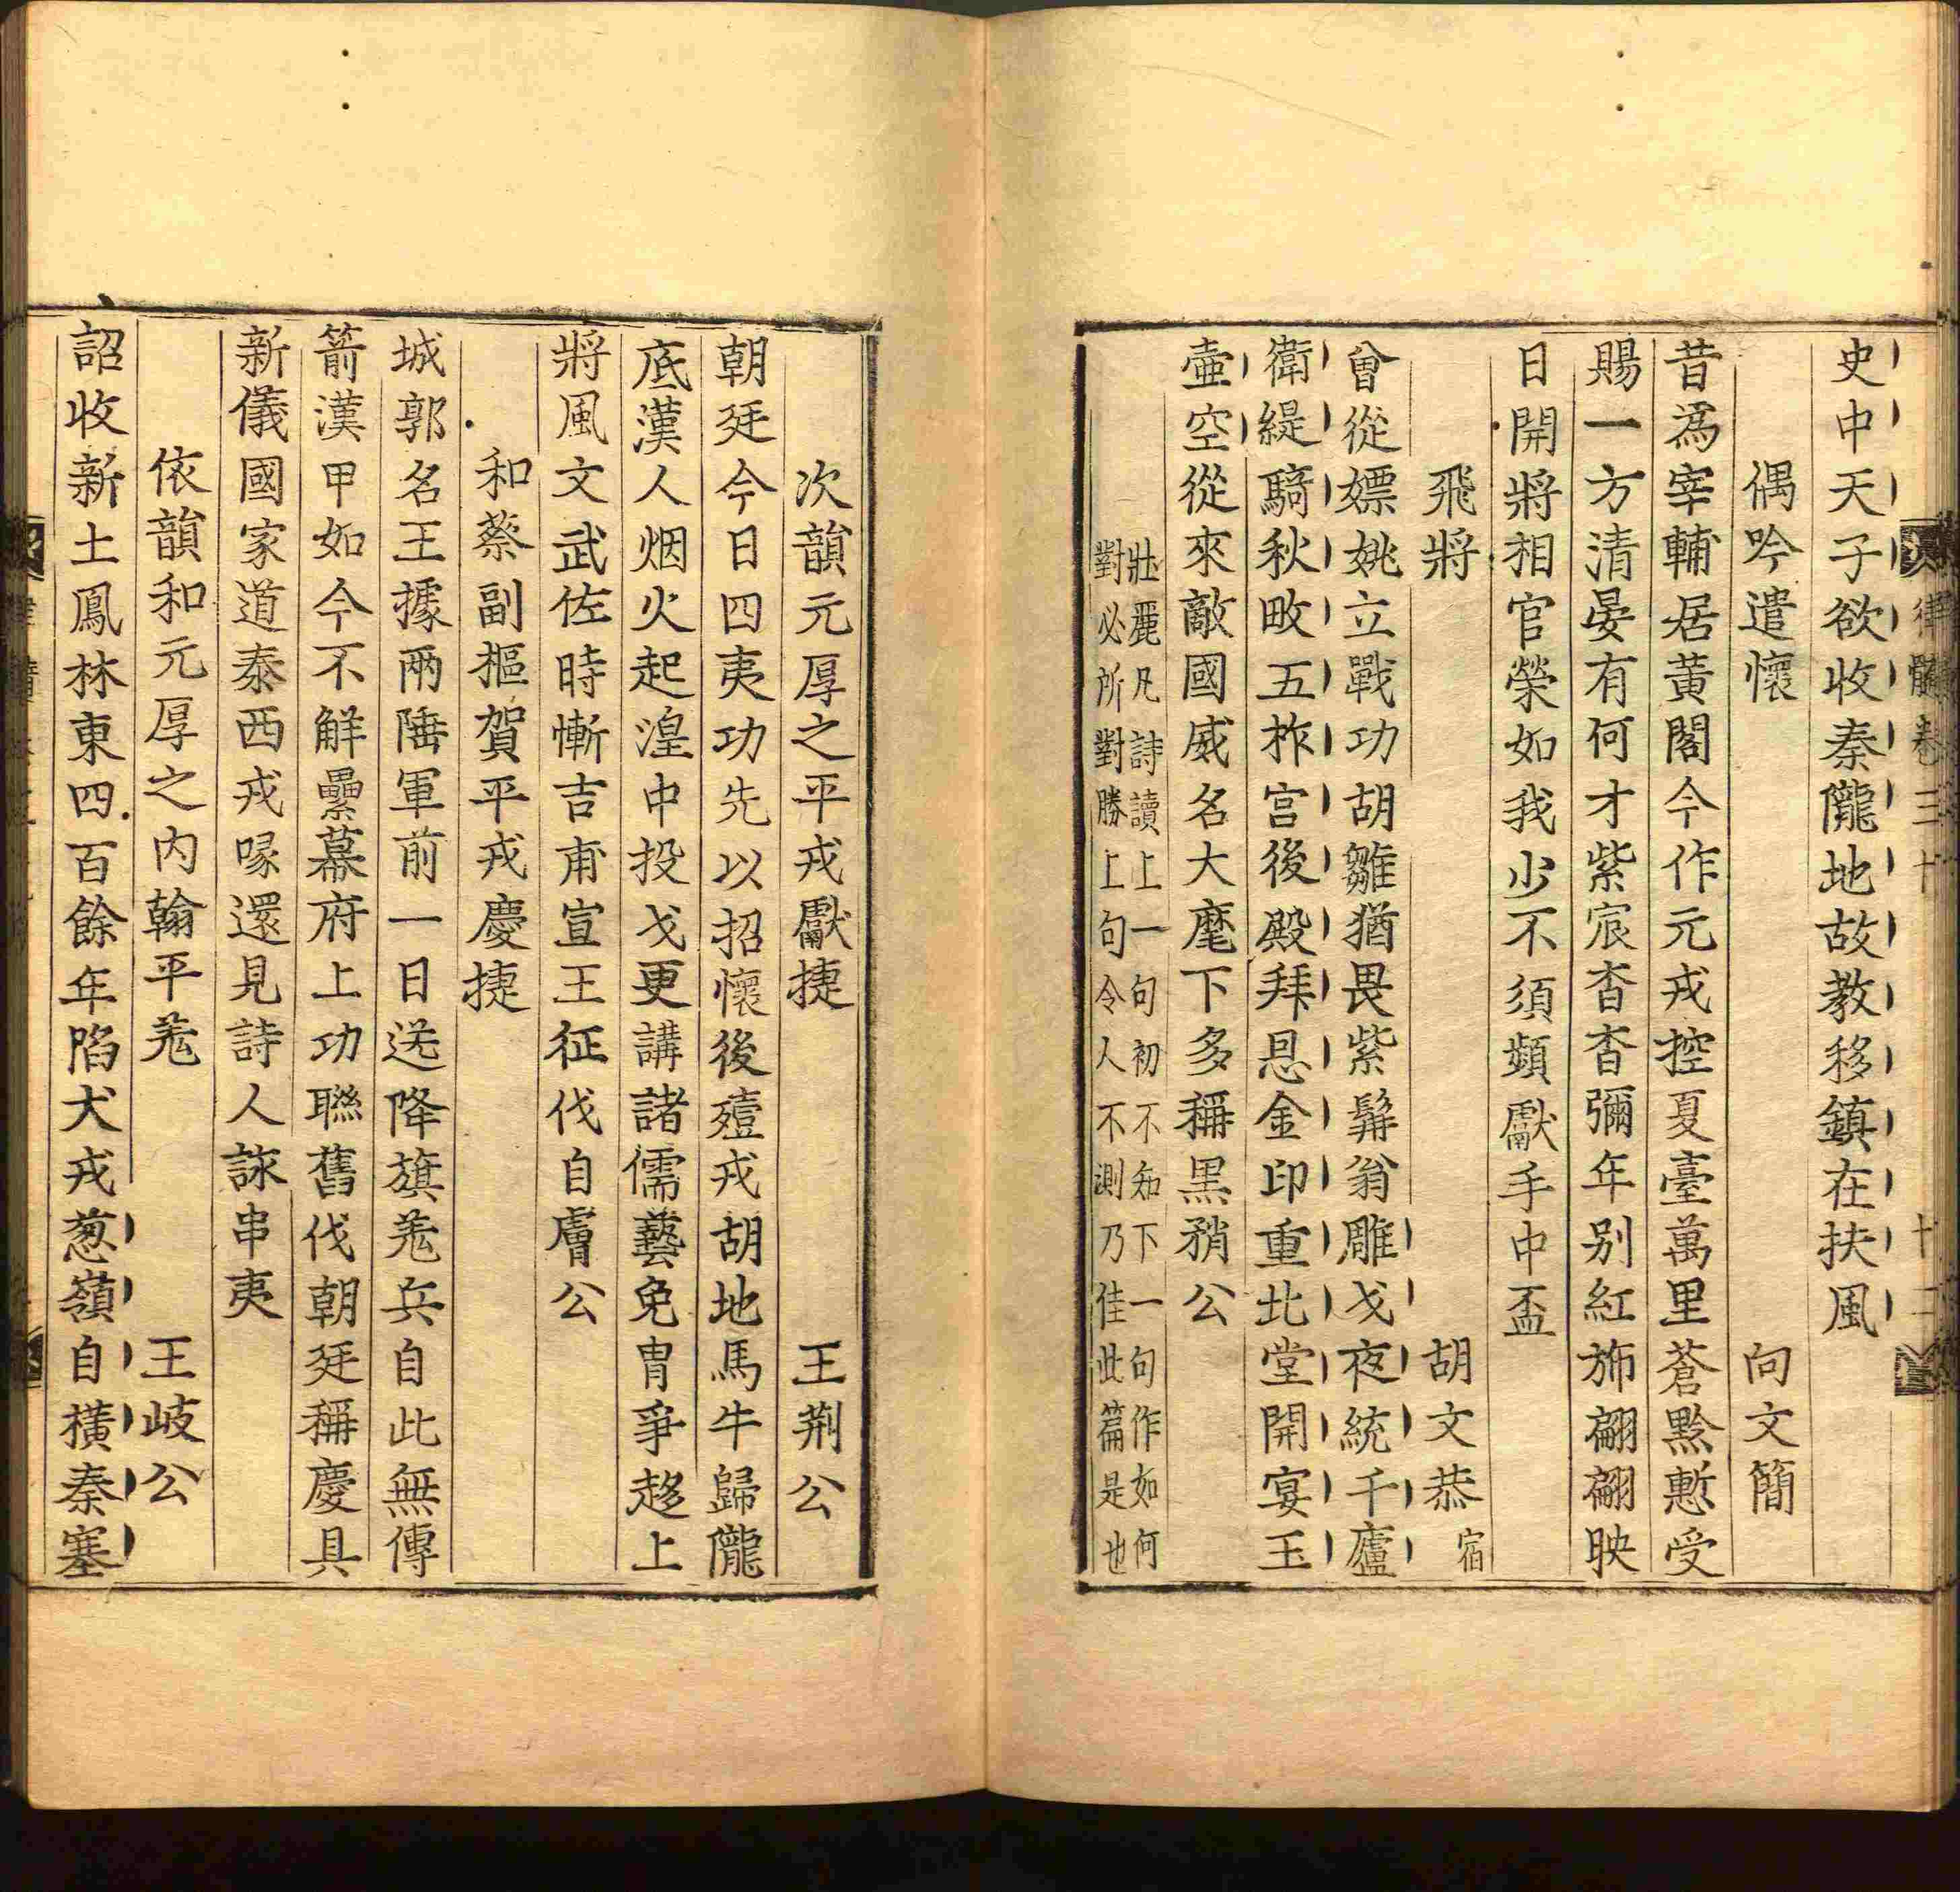 史中天子欲收秦隴地故教移鎮在扶風
偶吟遣懷 向文簡
昔爲宰輔居黃閣今作元戎控夏臺萬里蒼黔慙受
賜一方清晏有何才紫宸杳杳彌年别紅斾翩翩映
日開將相官榮如我少不須頻獻手中盃
飛將 胡文恭宿
曾從嫖姚立戰功胡雛猶畏紫髯翁雕戈夜統千廬
衛緹騎秋畋五柞宫後殿拜恩金印重北堂開宴玉
壷空從來敵國威名大麾下多稱黒矟公
壯麗凡詩讀上一句初不知下一句作如何
對必所對勝上句令人不測乃佳此篇是也
次韻元厚之平戎獻捷 王荆公
朝廷今日四夷功先以招懷後殪戎胡地馬牛歸隴
底漢人烟火起湟中投戈更講諸儒藝免胄爭趍上
將風文武佐時慚吉甫宣王征伐自膚公
和蔡副樞賀平戎慶捷
城郭名王據兩陲軍前一日送降旗羗兵自此無傳
箭漢甲如今不觧纍幕府上功聯舊伐朝廷稱慶具
新儀國家道泰西戎喙還見詩人詠串夷
依韻和元厚之内翰平羗 王岐公
詔收新土鳳林東四百餘年陷犬戎葱嶺自橫秦塞